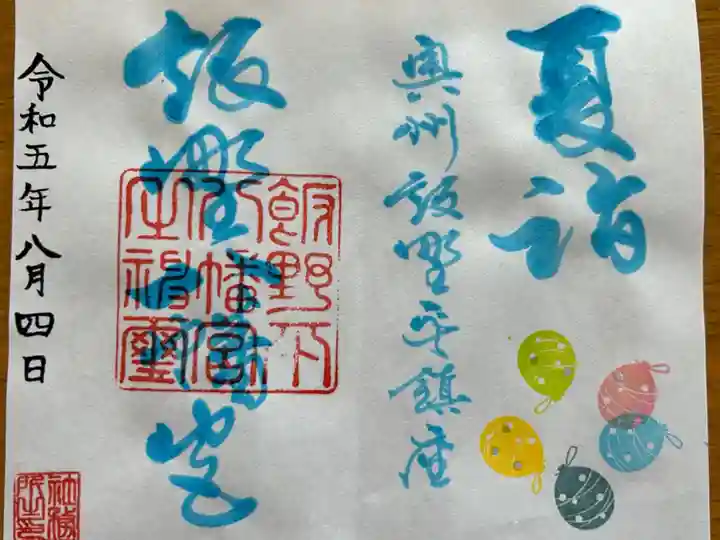 夏詣
奥州飯野平鎮座
飯野八幡宮
飯野
八幡宮
之神璽
令和五年八月四日
社務
所之印